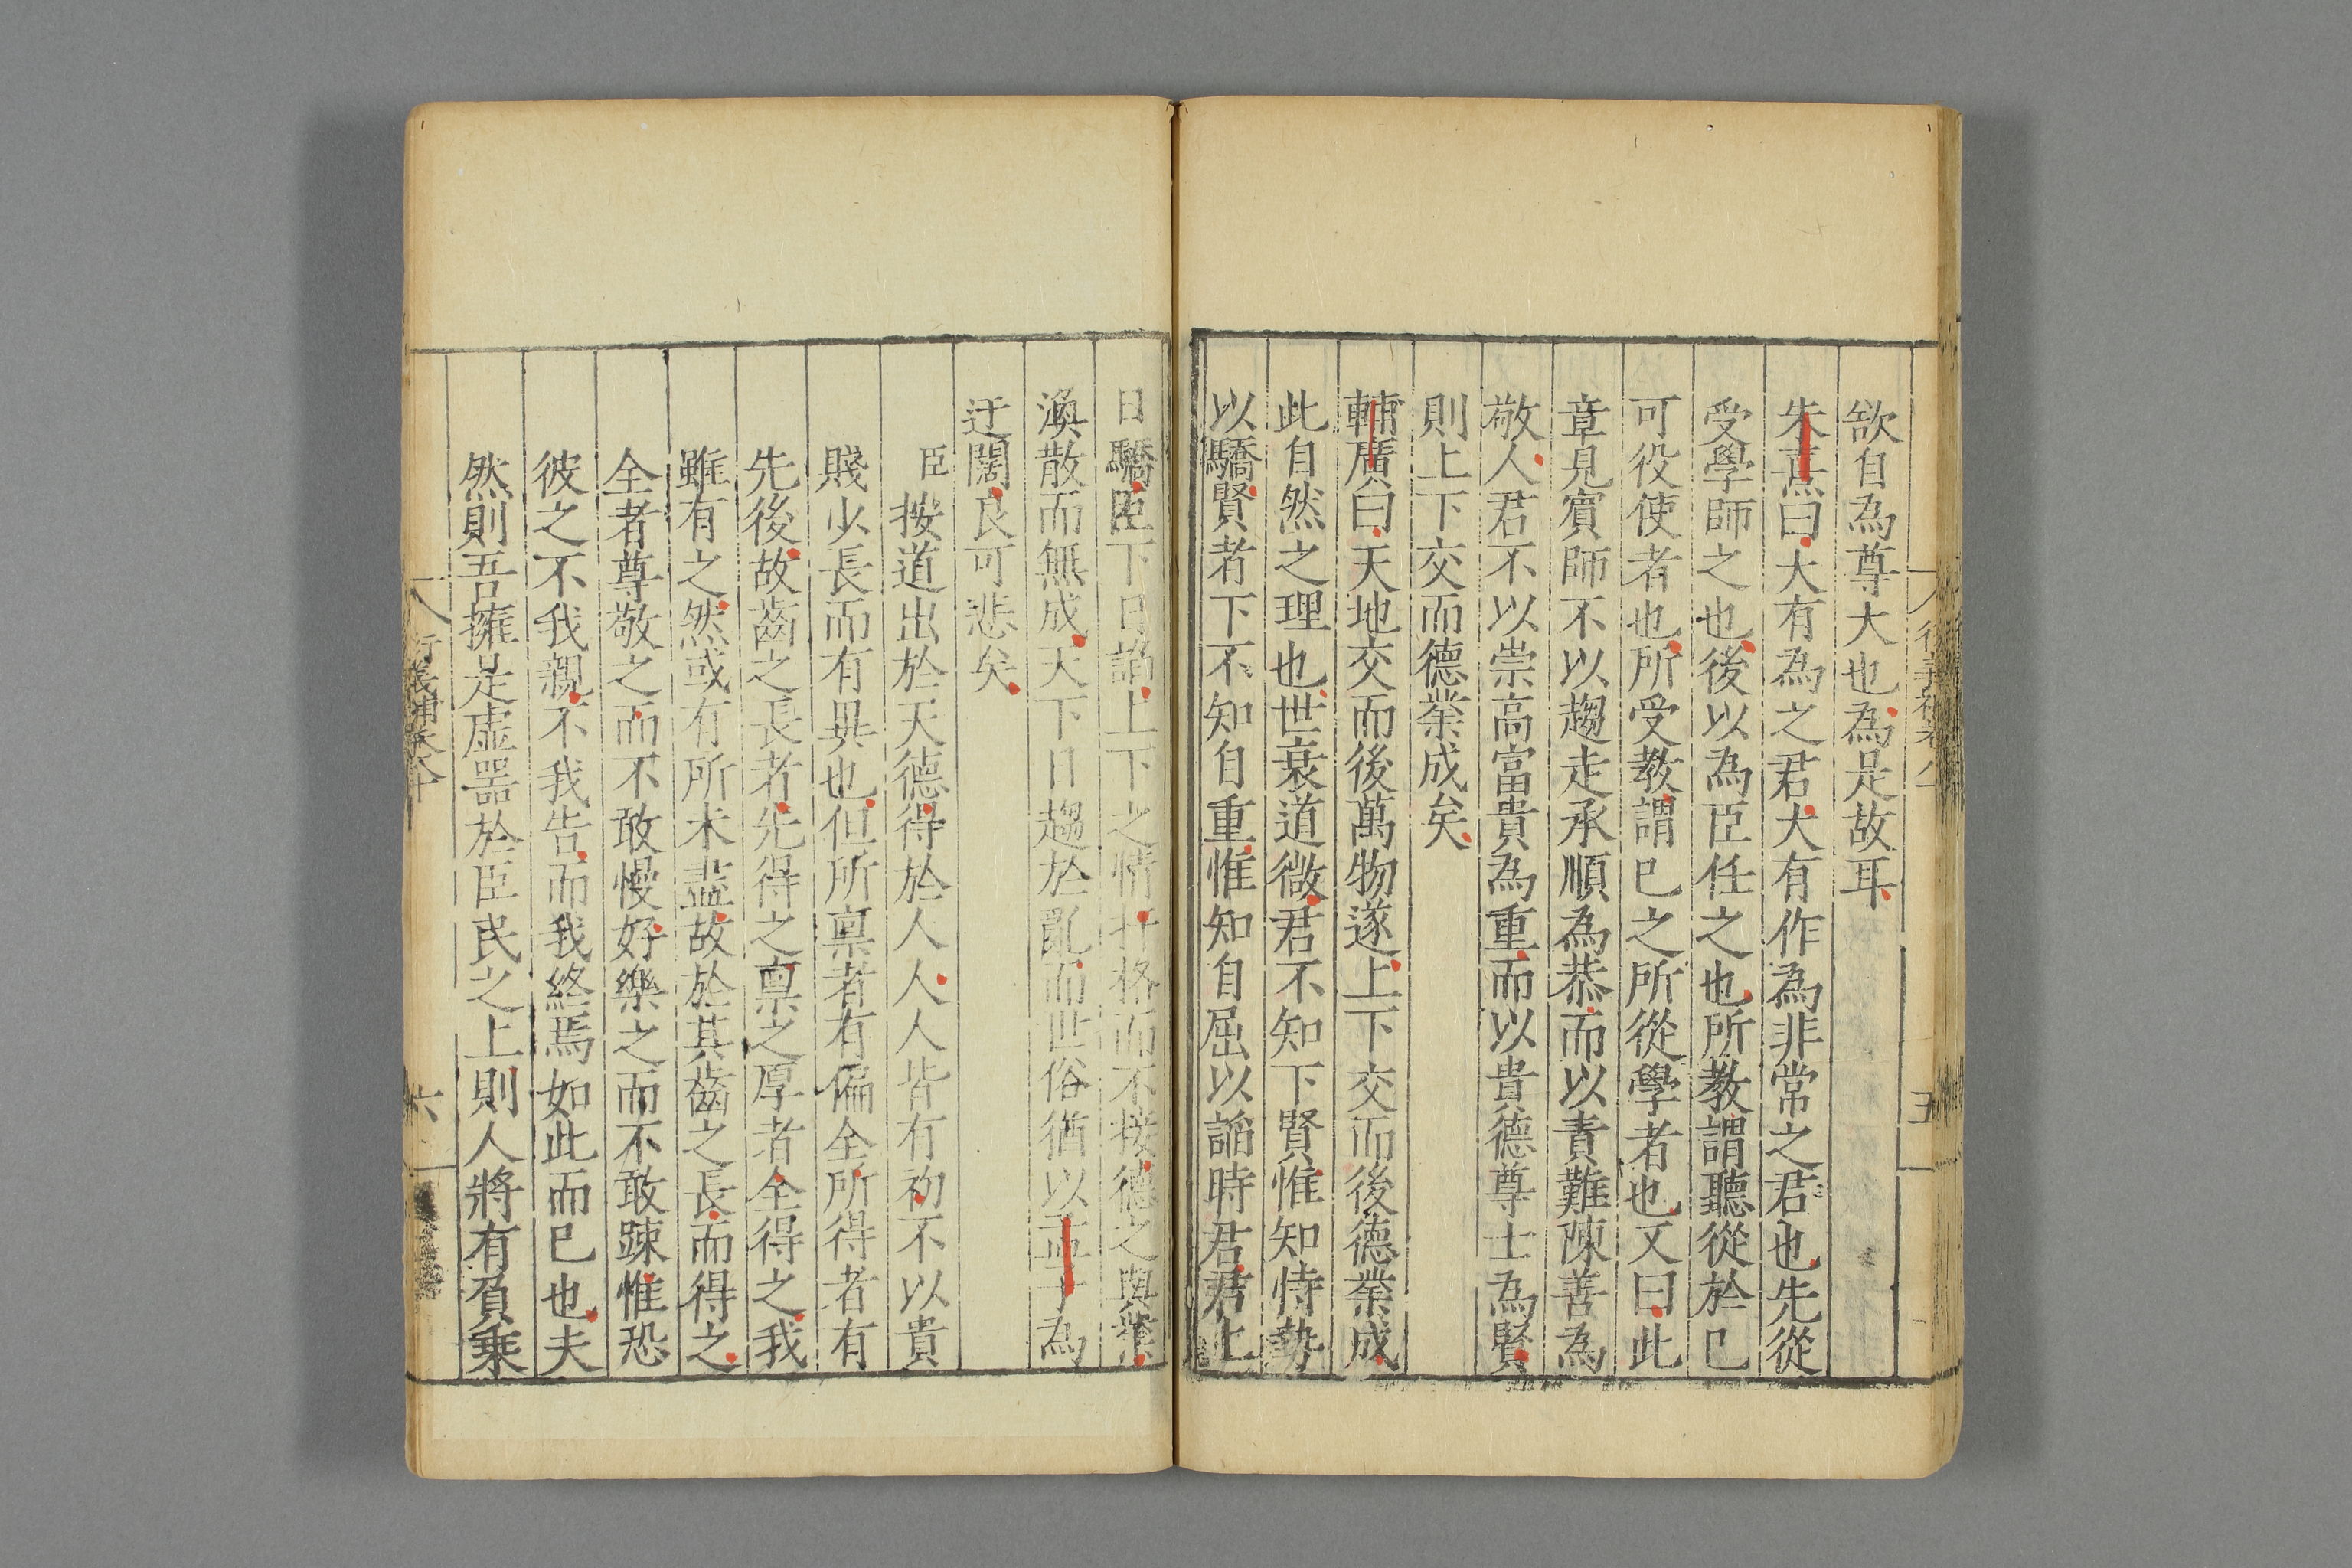 欲自為尊大也為是故耳
朱熹曰大有為之君大有作為非常之君也先從
受學師之也後以為臣任之也所教謂聽從於己
可役使者也所受教謂己之所從學者也又曰此
章見賓師不以趨走承順為恭而以責難陳善為
敬人君不以崇高富貴為重而以貴德尊士為賢
則上下交而德業成矣
輔廣曰天地交而後萬物遂上下交而後德業成
此自然之理也世衰道微君不知下賢惟知恃勢
以驕賢者下不知自重惟知自屈以諂時君君上
日驕臣下日諂上下之情扞格而不接德之與業
渙散而無成天下日趨於亂而世俗猶以孟子為
迂闊良可悲矣
臣按道出於天德得於人人人皆有初不以貴
賤少長而有異也但所稟者有偏全所得者有
先後故齒之長者先得之稟之厚者全得之我
雖有之然或有所未盡故於其齒之長而得之
全者尊敬之而不敢慢好樂之而不敢踈惟恐
彼之不我親不我告而我終焉如此而已也夫
然則吾擁是虛器於臣民之上則人將有負乗
衍義補卷八十
六
五